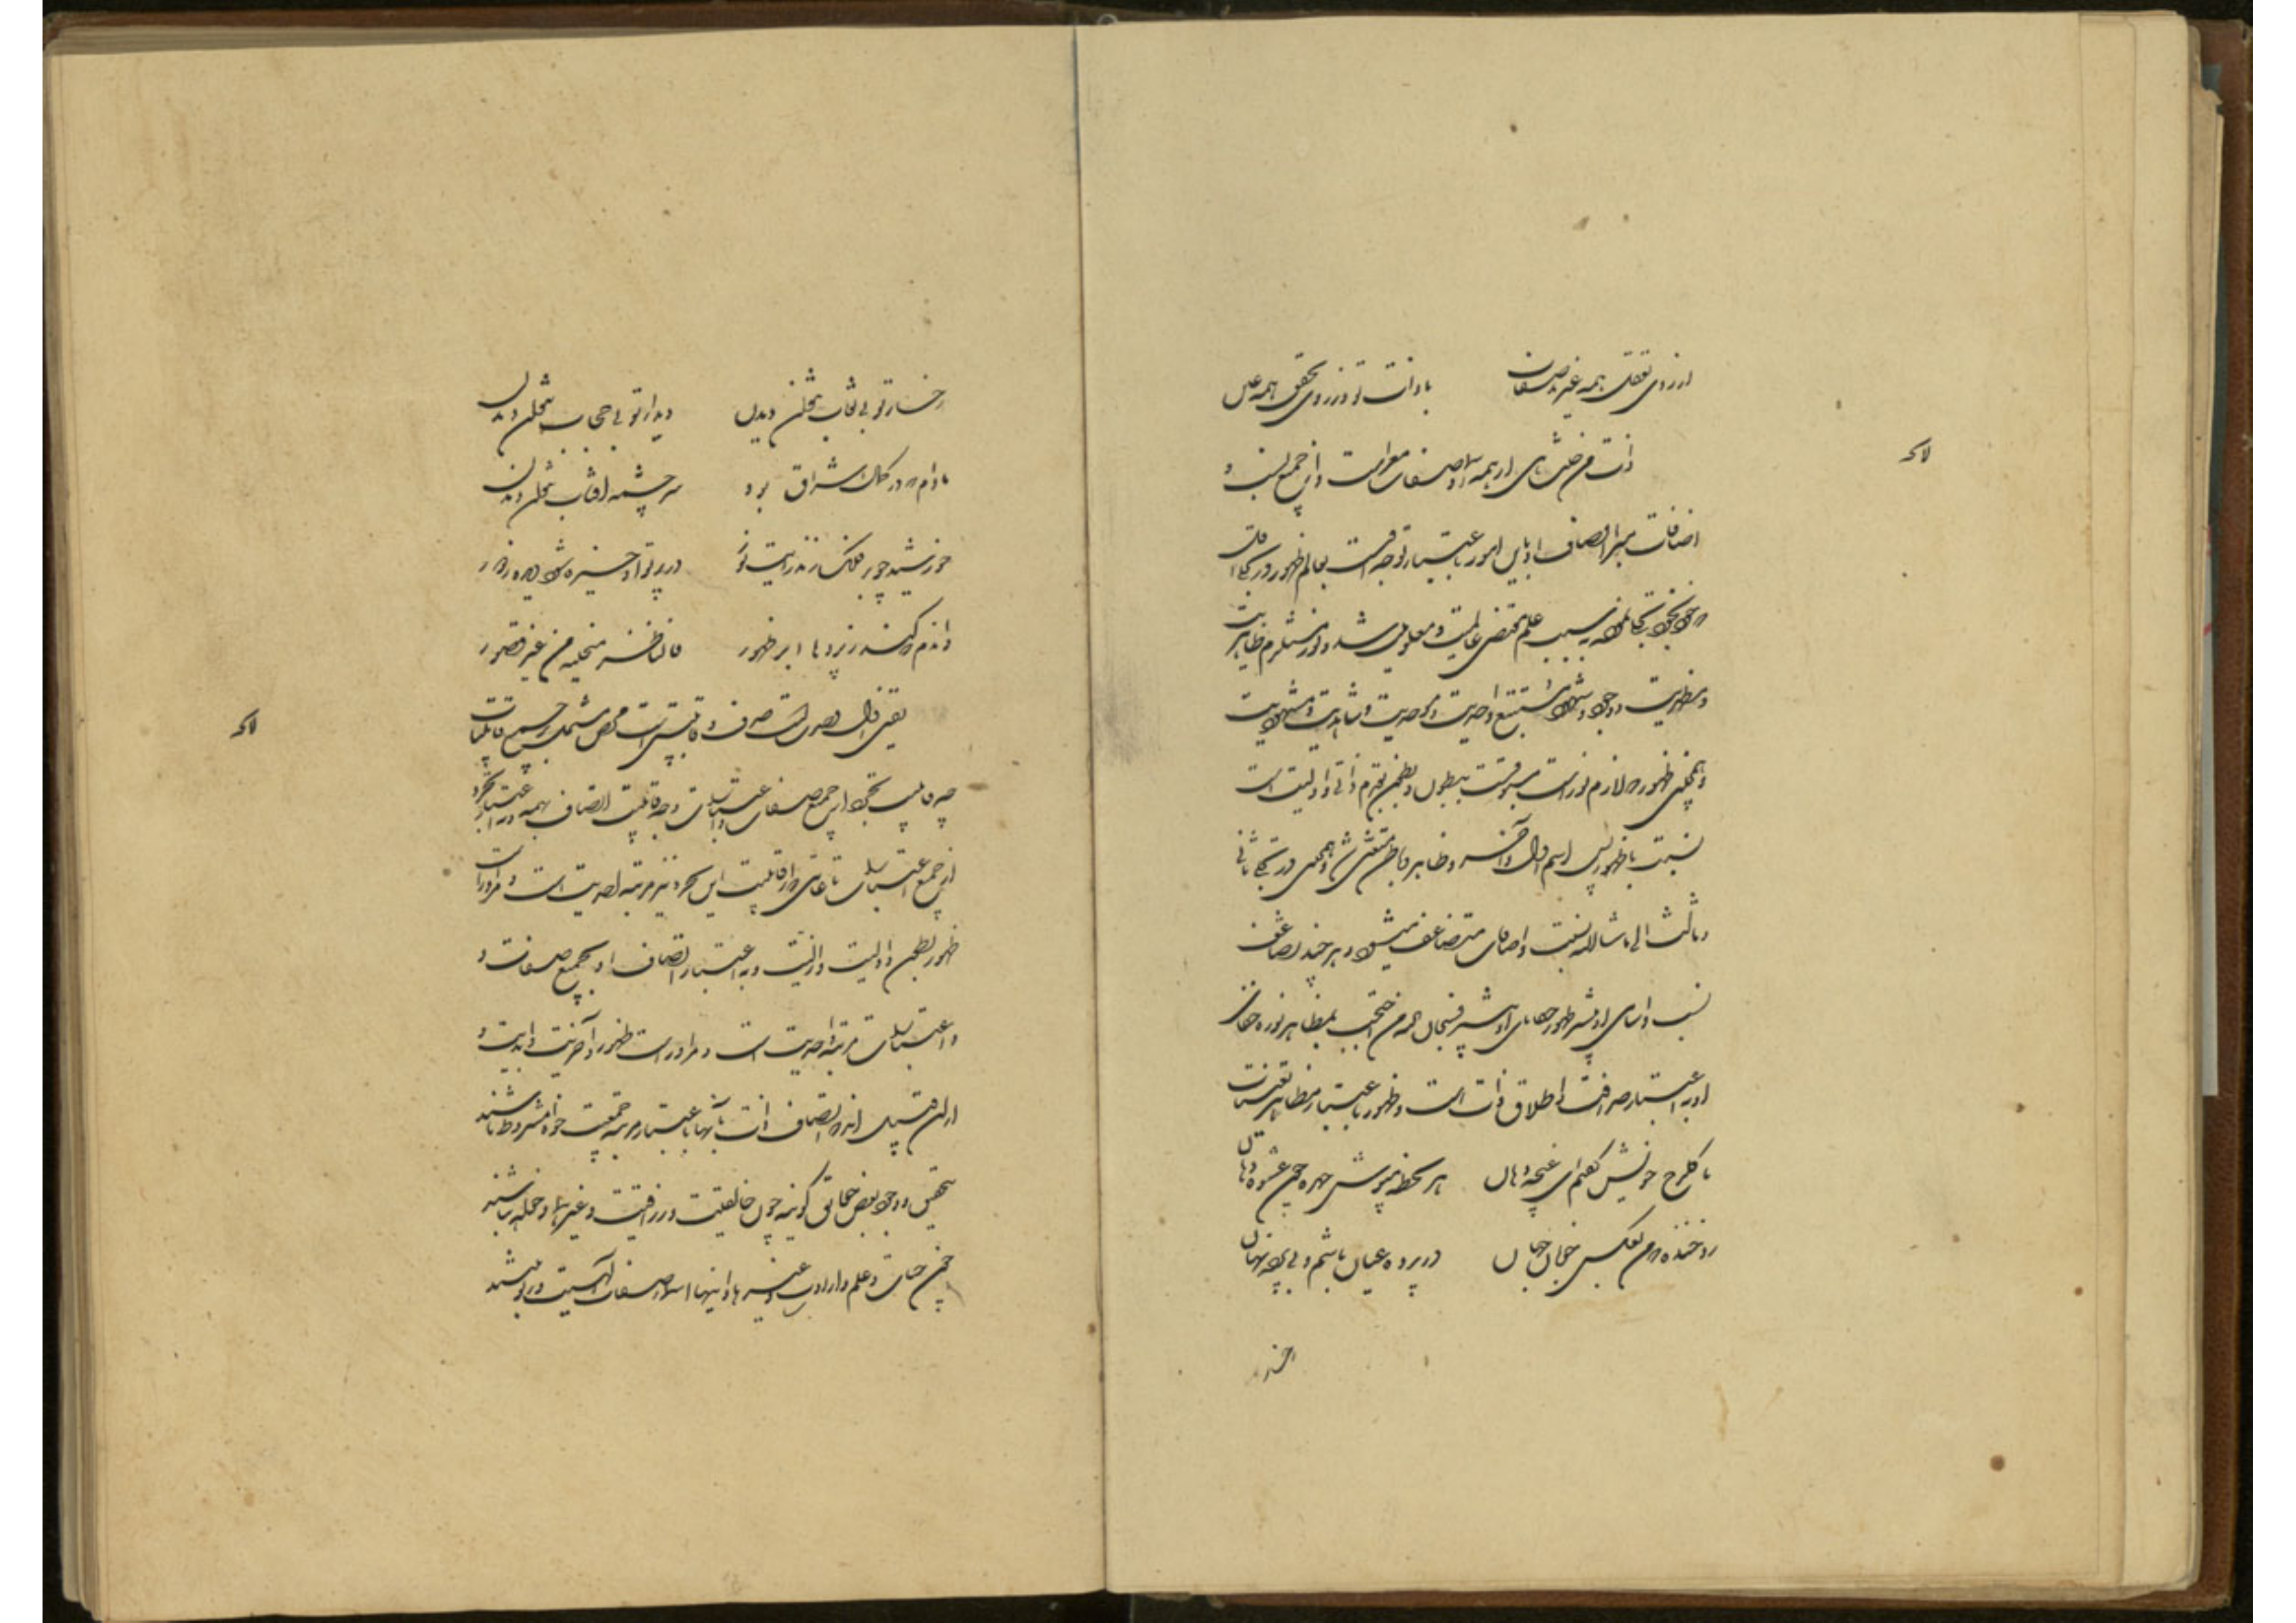 از روی تعقل همه غیرند صفات با ذات تو از روی تحقق همه عین
لایحه
ذات من حیث هی از همه اسما و صفات معراست و از جمیع نسب و
اضافات مبرا اتصاف او باین امور باعتبار توجه اوست بعالم ظهور در تجلی اول
که خود بخود تجلی نمود نسبت علم مقتضی عالمیت و معلومیت شد و نور مستلزم ظاهریت
و مظهریت و وجود و شهود مستتبع واجدیت و موجودیت و شاهدیت و مشهودیت
و همچنین ظهور که لازم نور است مسبوقست ببطون و بطون تقدم ذاتی و اولیت است
نسبت با ظهور پس اسم اول و آخر و ظاهر و باطن متعین شد و همچنین در تجلی ثانی
و ثالث الی ماشاالله نسبت و اضافات متضاعف میشود و هر چند تضاعف
نسب و اسمای او بیشتر ظهور خفای او بیشتر فسبحان من احتجب بمظاهر نوره خفای
او به اعتبار صرافت و اطلاق ذات است و ظهور باعتبار مظاهر تعینات
با گلرخ خویش گفتم ای غنچه دهان هر لحظه مپوش چهره چون عشوه دهان
زد خنده که من بعکس خوبان جهان در پرده عیان باشم و بی پرده نهان
رخسار
رخسار تو بی نقاب نتوان دیدن دیدار تو بی حجاب نتوان دیدن
مادام که در کمال اشراق بود سرچشمه آفتاب نتوان دیدن
خورشید چو بر فلک زند رایت نور در پرتو او خیره شود دیده ز دور
واندم که کند ز پرده ابر ظهور فالناظر یجتلیه من غیر قصور
لایحه
تعین اول وحدتیست صرف و قابلیتی است محض مشتمل بر جمیع قابلیات
چه قابلیت تجرد از جمیع صفات و اعتبارات و چه قابلیت اتصاف بهمه و به اعتبار تجرد
از جمیع اعتبارات تا غایتی که از قابلیت این تجرد نیز مرتبه احدیت است و مر او راست
ظهور بطون و اولیت و ازلیت و به اعتبار اتصاف او بجمیع صفات و
و اعتبارات مرتبه واحدیت است و مر او راست ظهور و آخریت و ابدیت و
از این قبیل اند که اتصاف ذات بآنها باعتبار مرتبه جمعیت خواه مشروط باشند
بتحقق و وجود بعض حقایق کونیه چون خالقیت و رازقیت و غیرهما و خواه نباشند
چون حیات و علم و ارادت و غیرها و اینها اسما و صفات الهیت و ربوبیتند